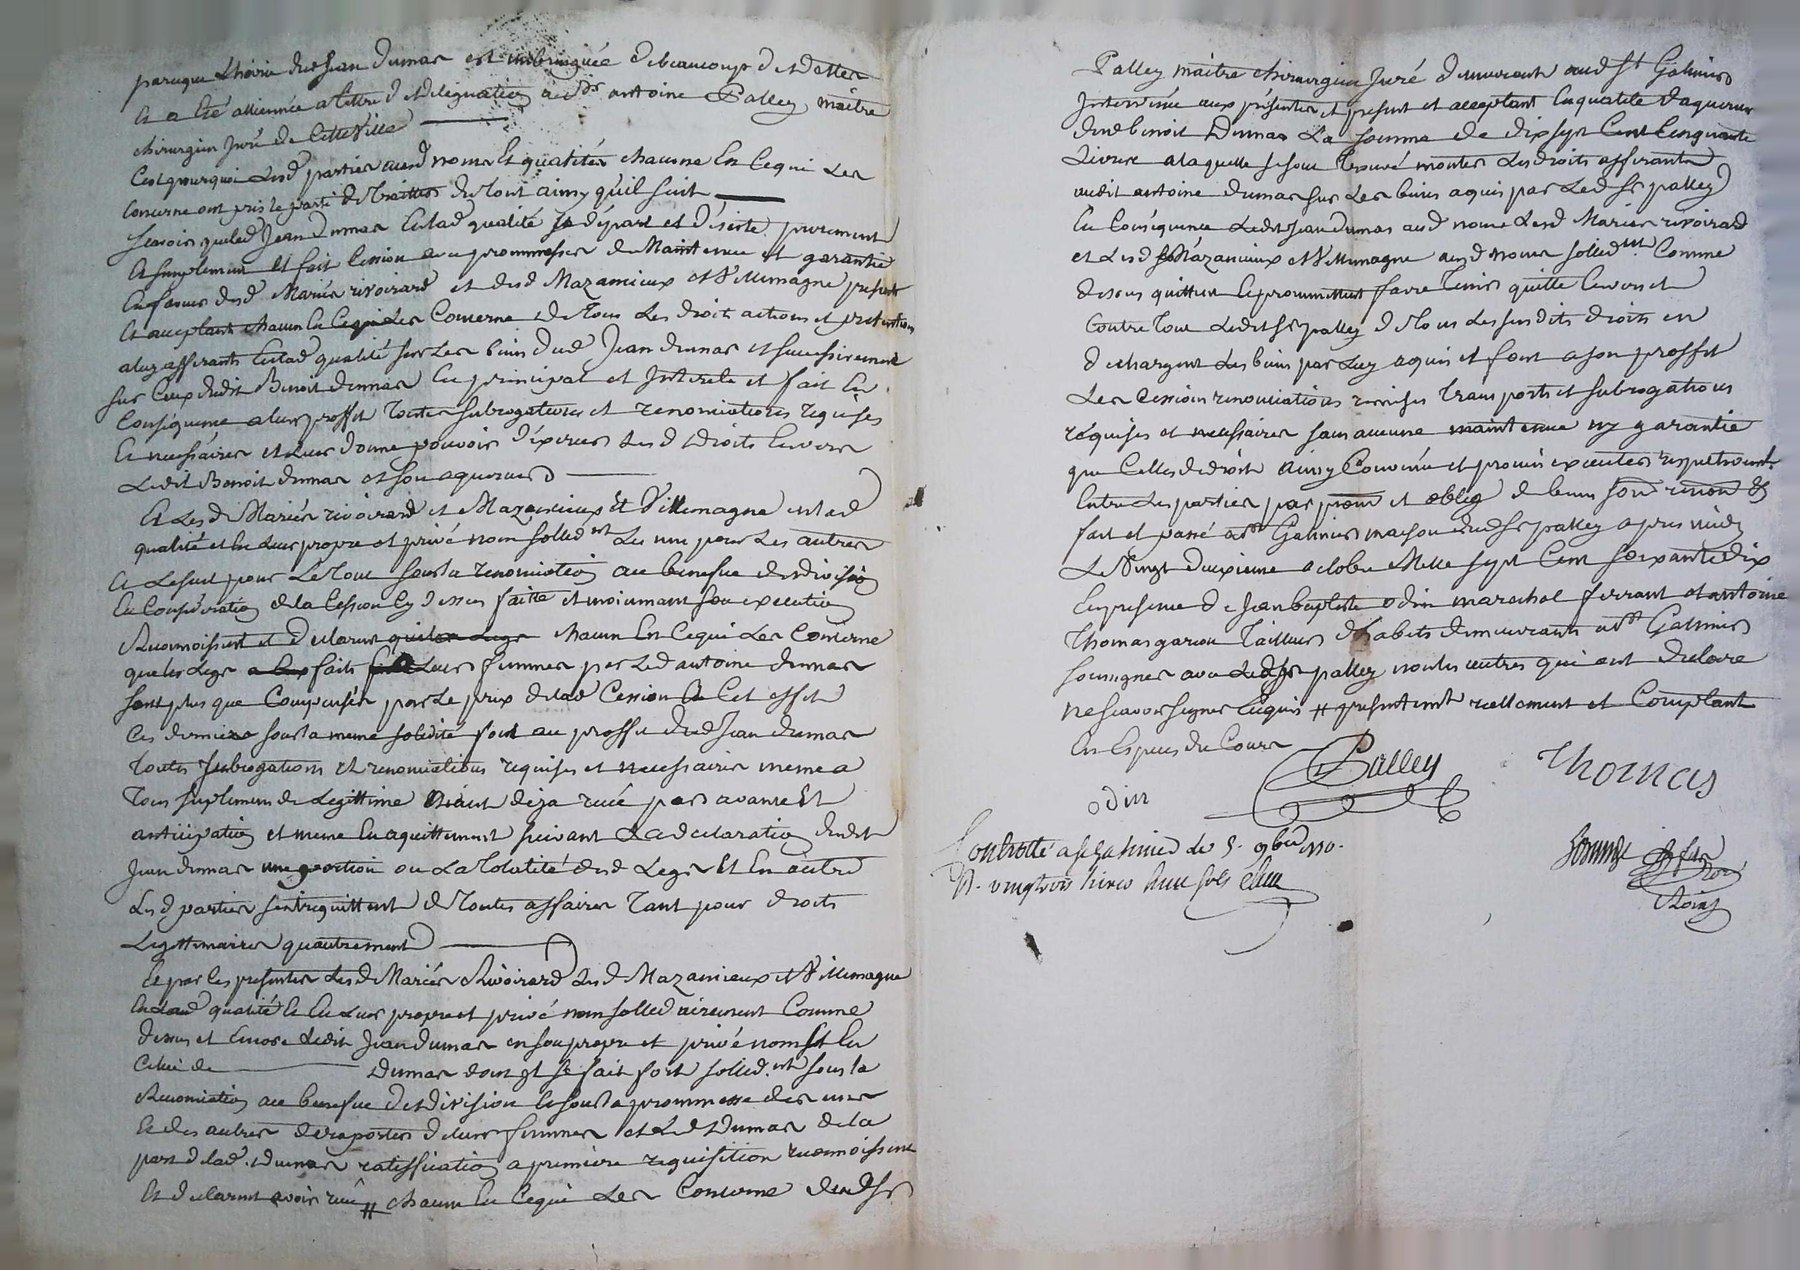 parceque l'hoirie dud Jean dumas est embringuée de beaucoup de dettes
et a été alliennée a titre de delegation aud Sr antoine Palley maitre
chirurgien Juré de cette Ville
C'est pourquoi lesd parties aud noms et qualités chacune en ce qui les
concerne ont pris le parti de traitter du tout ainsy qu'il suit
scavoir que led Jean dumas en lad qualité se départ et désiste purement
et simplement et fait cession avec prommesse de Maintenue et garantie
en faveur desd Mariés rivoirard et desd Mazanieux et Villemagne present
et acceptants chacun en ce qui les concerne de tous les droits actions et pretentions
a luy afferants en lad qualité sur les biens dud Jean dumas et successivement
sur ceux dudit Benoit dumas en principal et Interets et fait en
conséquence a leur proffit toutes subrogations et renonciations requises
et necessaires et leur donne pouvoir d'exercer lesd droits envers
ledit Benoit dumas et son aquereur
Et lesd Mariés rivoirard et Mazanieux et Villemagne en lad
qualité et en leur propre et privé nom sollid.nt les uns pour les autres
et le seul pour le tout sous la renonciation au benefice de division
en considération de la cession cy dessus faite et moienant son execution
Reconnoissent et declarent que les legs chacun en ce qui les concerne
que les legs faits a leurs femmes par led antoine dumas
sont plus que compensés par le prix de lad Cession et a cet effet
ces derniers sous la meme solidité font au proffit dud Jean dumas
toutes subrogations et renonciations requises et necessaires meme a
tous suplemens de legittime aiant deja reçu par avance et
anticipation et meme en aquittement suivant la declaration dudit
Jean dumas une portion ou la totalité desd legs et en outre
lesd parties s'entrequittent de toutes affaires tant pour droits
legittimaires qu'autrement
et par ces presentes lesd Mariés Rivoirard lesd Mazanieux et Villemagne
en lad qualité et en leur propre et privé nom sollidairement comme
dessus et encore ledit Jean dumas en son propre et privé nom et en
celui de dumas dont il se fait fort sollid.nt sous la
Renonciation au benefice de division et sous la prommesse des uns
et des autres de rapporter de leurs femmes et led dumas de la
part de lad dumas ratiffication a premiere requisition reconnoissent
et declarent avoir reçu # chacun en ce qui les concerne dud Sr
Palley maitre chirurgien Juré demeurant aud St Galmier
Intervenu aux présentes et present et acceptant en qualité d'aquereur
dud benoit dumas La somme de dix sept Cent cinquante
Livres a laquelle se sont trouvé monter les droits afferants
audit antoine dumas sur les biens aquis par led Sr palley
En conséquence ledit Jean dumas aud nom lesd Mariés rivoirard
et lesd Mazanieux et Villemagne aud noms sollid.nt Comme
dessus quittent et promettent faire tenir quitte envers et
contre tous ledit Sr palley de tous les susdits droits en
dechargent les biens par luy aquis et font a son proffit
les cessions renonciations remises transports et subrogations
réquises et necessaires sans aucune maintenue ny garantie
que celles de droit ainsy Convenu et promis executer respectivemt
entre les parties par prom et oblig de biens soum renon &
fait et passé a St Galmier maison dud Sr palley apres midy
Le Vingt deuxieme octobre Mille sept Cent soixante dix
en presence de Jean baptiste odin marechal ferrant et antoine
thomas garcon tailleur d'habits demeurants a St Galmier
soussignes avec led Sr palley non les autres qui ont declare
ne scavoir signer enquis # presentemt reellement et Comptant
en Especes du Cours
Palley Thomas
odin
Controllé a St Galmier le 5. 9bre 1770.